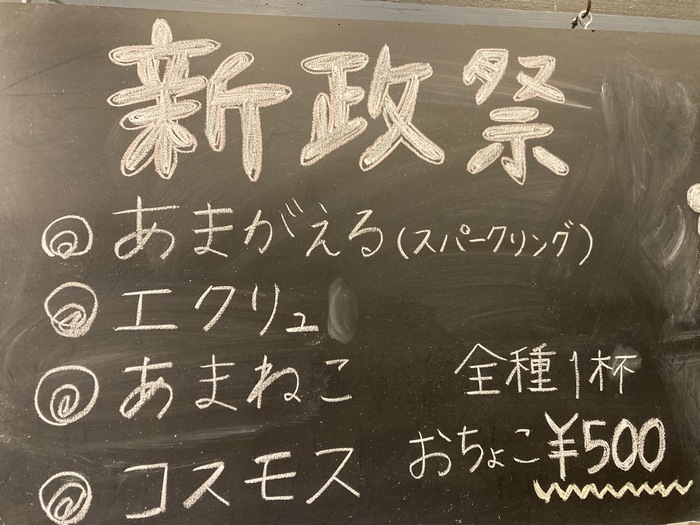 新政祭
◎あまがえる(スパークリング)
◎エクリュ
◎あまねこ
◎コスモス
全種1杯
おちょこ¥500